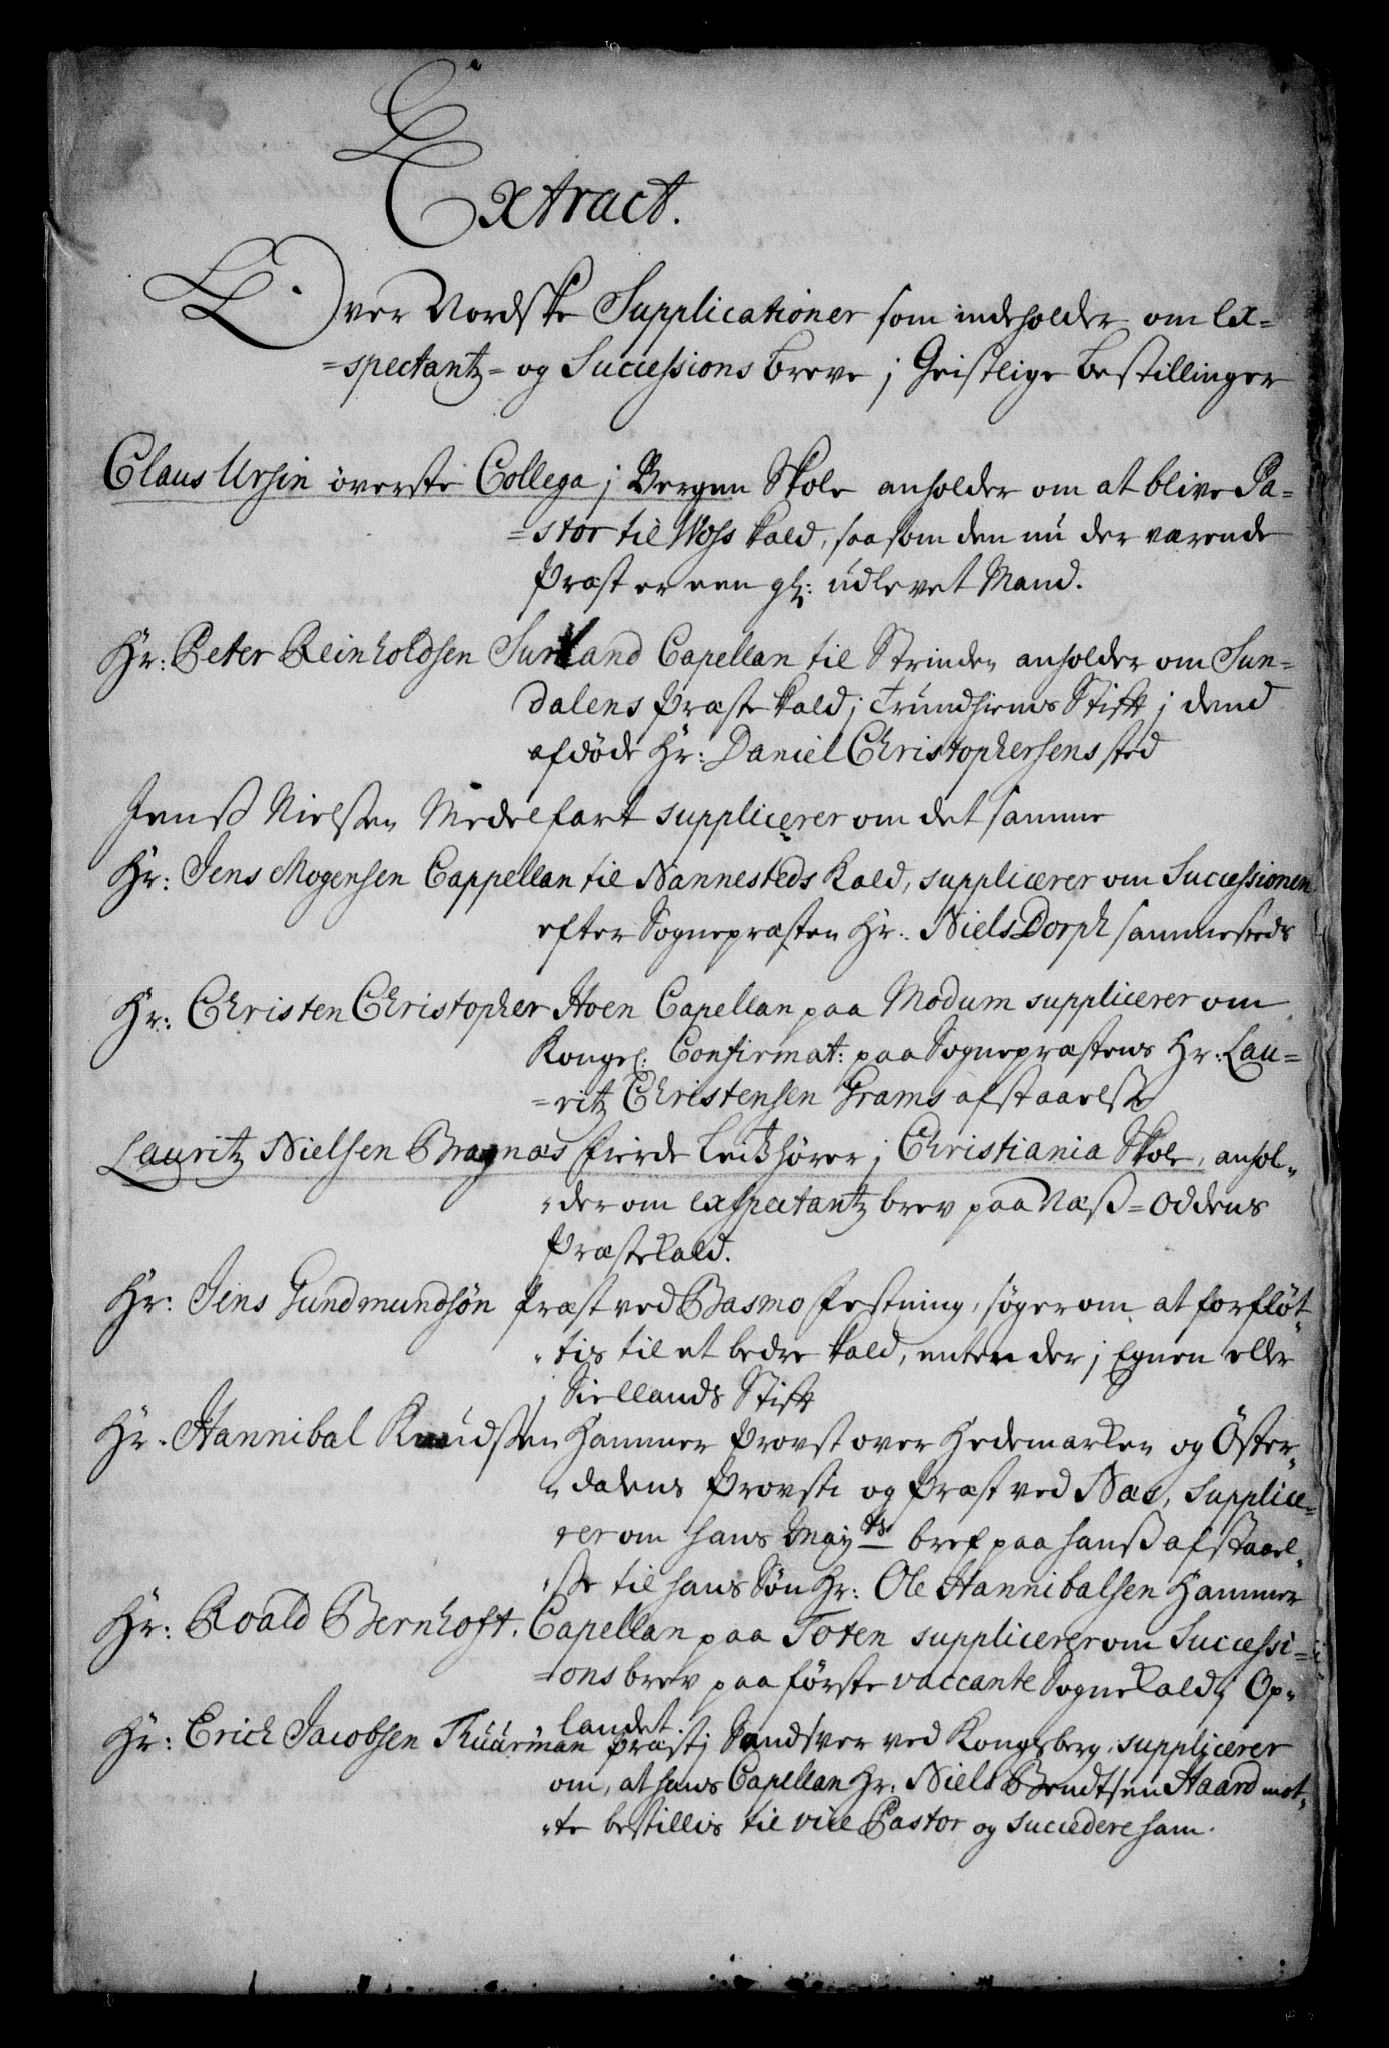 Extract.
Over Nordske Supplicationer som indeholder om Ex=
=spectantz= og Successions breve j Geistlige bestillinger
Claus Ursin överste Collega j Bergen Skole anholder om at blive Pa=
=stor til Woss kald, saasom den nu der værende
Præst er een gl: udlevet Mand.
Hr: Peter Reinholdsen Surland Capellan til Strinden anholder om Sun=
dalens Præstekald j Trundhiems Stift j dend
afdöde Hr: Daniel Christophersens sted
Jenss Nielssen Medelfart supplicerer om det samme
Hr: Jens Mogensen Cappellan til Nannesteds Kald, supplicerer om Successionen
efter Sognepræsten Hr: Niels Dorph sammesteds
Hr: Christen Christopher Hoen Capellan paa Modum supplicerer om
Kongel. Confirmat: paa Sognepræstens Hr: Lau=
=ritz Christensen Grams afstaaelsse
Lauritz Nielsen Bragnæs fierde Lectie hører j Christiania Skole, anhol=
=der om exspectantz brev paa Næss=Oddens
Præstekald.
Hr: Jens Gundmundsön Præst ved Basmo Festning, söger om at forflöt=
=tis til et bedre kald, enten der j Egnen eller
j Siellands Stift
Hr. Hannibal Knudssen Hammer Provst over Hedemarken og Öster=
=dalens Provsti og Præst ved Næs, supplice=
=rer om hans Mayts bref paa hanss afstaael=
=sse til hans Sön Hr: Ole Hannibalsen Hammer
Hr: Roald Bernhoft, Capellan paa Toten supplicerer om Successi=
=ons brev paa förste vaccante Sognekald j Op=
=landet.
Hr: Erich Jacobsen Thuurman Præst j Sandsver ved Kongsberg, supplicerer
om, at hans Capellan Hr: Niels Bendtsen Haard mot=
=te bestillis til vice Pastor og succedere ham.